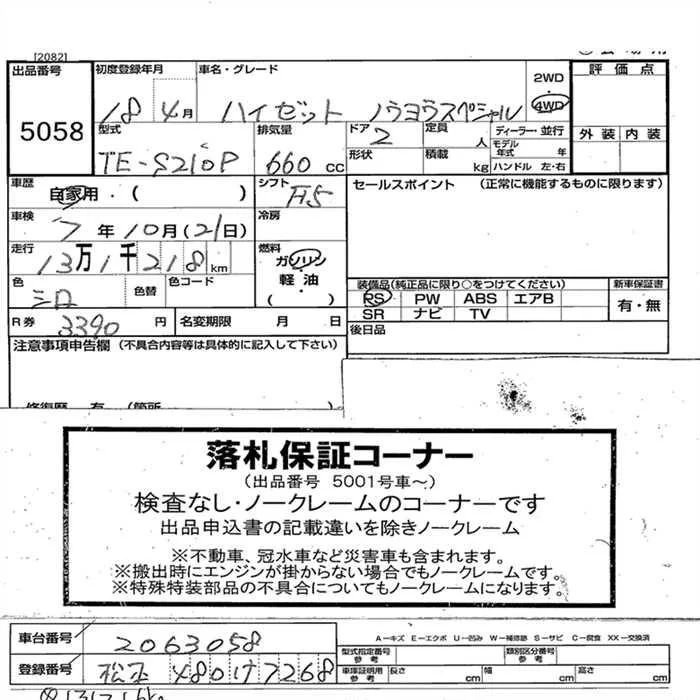 [2082]
出品番号 初度登録年月 車名・グレード 評価点
5058 18年4月 ハイゼット ノウヨウスペシャル 2WD 4WD
型式 排気量 ドア 定員 ディーラー・並行 外装 内装
TE-S210P 660cc 2 人 モデル年式 年
形状 積載 kg ハンドル 左・右
車歴 自家用・( ) シフト F5 セールスポイント (正常に機能するものに限ります)
車検 7年10月(21日) 冷房
走行 13万1千218km 燃料 ガソリン
軽油
( )
色 シロ 色替 色コード 装備品(純正品に限り○をつけてください) 新車保証書
PS PW ABS エアB 有・無
SR ナビ TV
R券 3390円 名変期限 月 日 後日品
注意事項申告欄 (不具合内容等は具体的に記入して下さい)
修復歴 有 (箇所
落札保証コーナー
(出品番号 5001号車~)
検査なし・ノークレームのコーナーです
出品申込書の記載違いを除きノークレーム
※不動車、冠水車など災害車も含まれます。
※搬出時にエンジンが掛からない場合でもノークレームです。
※特殊特装部品の不具合についてもノークレームになります。
A-キズ E-エクボ U-凹み W-補修跡 S-サビ C-腐食 XX-交換済
車台番号 2063058 型式指定番号 参考 類別区分番号 参考
登録番号 480け7268 車庫証明用 参考 長さ cm 幅 cm 高さ cm